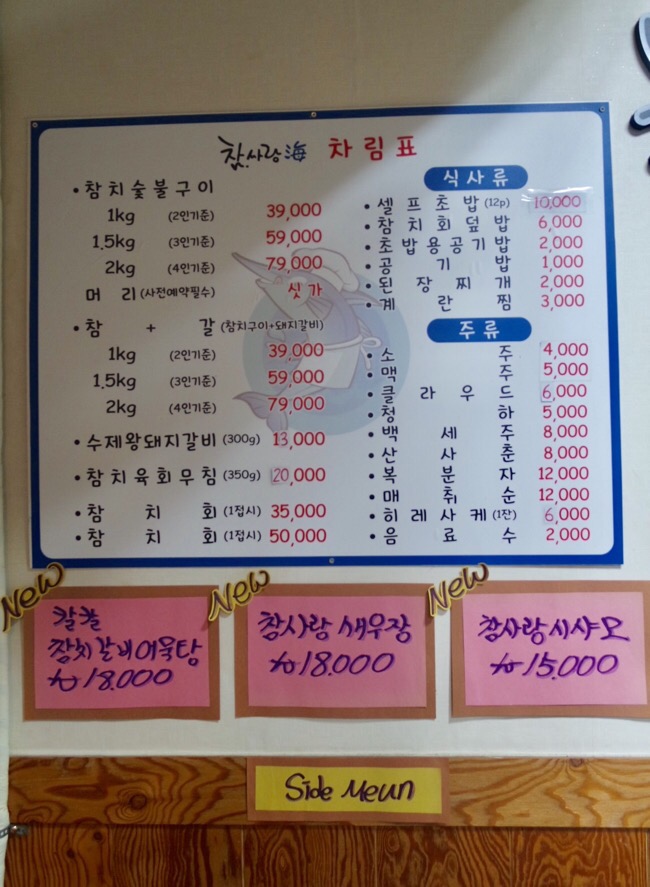 참사랑海 차림표
• 참치숯불구이
1kg (2인기준) 39,000
1.5kg (3인기준) 59,000
2kg (4인기준) 79,000
머리(사전예약필수) 싯가
• 참 + 갈 (참치구이+돼지갈비)
1kg (2인기준) 39,000
1.5kg (3인기준) 59,000
2kg (4인기준) 79,000
• 수제왕돼지갈비 (300g) 13,000
• 참치육회무침 (350g) 20,000
• 참치회 (1접시) 35,000
• 참치회 (1접시) 50,000
식사류
• 셀프초밥 (12p) 10,000
• 참치회덮밥 6,000
• 초밥용공기밥 2,000
• 공기밥 1,000
• 된장찌개 2,000
• 계란찜 3,000
주류
• 소주 4,000
• 맥주 5,000
• 클라우드 6,000
• 청하 5,000
• 백세주 8,000
• 산사춘 8,000
• 복분자 12,000
• 매취순 12,000
• 히레사케 (1잔) 6,000
• 음료수 2,000
New
칼칼
참치갈비어묵탕
₩18.000
New
참사랑 새우장
₩18.000
New
참사랑 시샤모
₩15.000
Side Meun